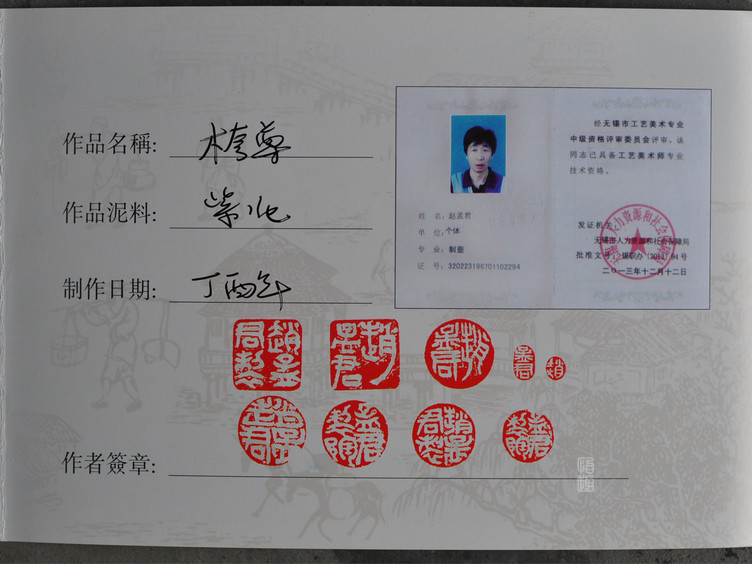 作品名稱:
作品泥料: 紫泥
制作日期: 丁酉年
作者簽章:
姓 名: 赵孟君
单 位: 个体
专 业: 制壶
证 号: 320223196701102294
经无锡市工艺美术专业
中级资格评审委员会评审,该
同志已具备工艺美术师专业
技术资格。
发证机关:
无锡市人力资源和社会保障局
批准文号:锡职办(2013) 94号
二〇一三年十二月十二日
趙孟君製
趙孟君